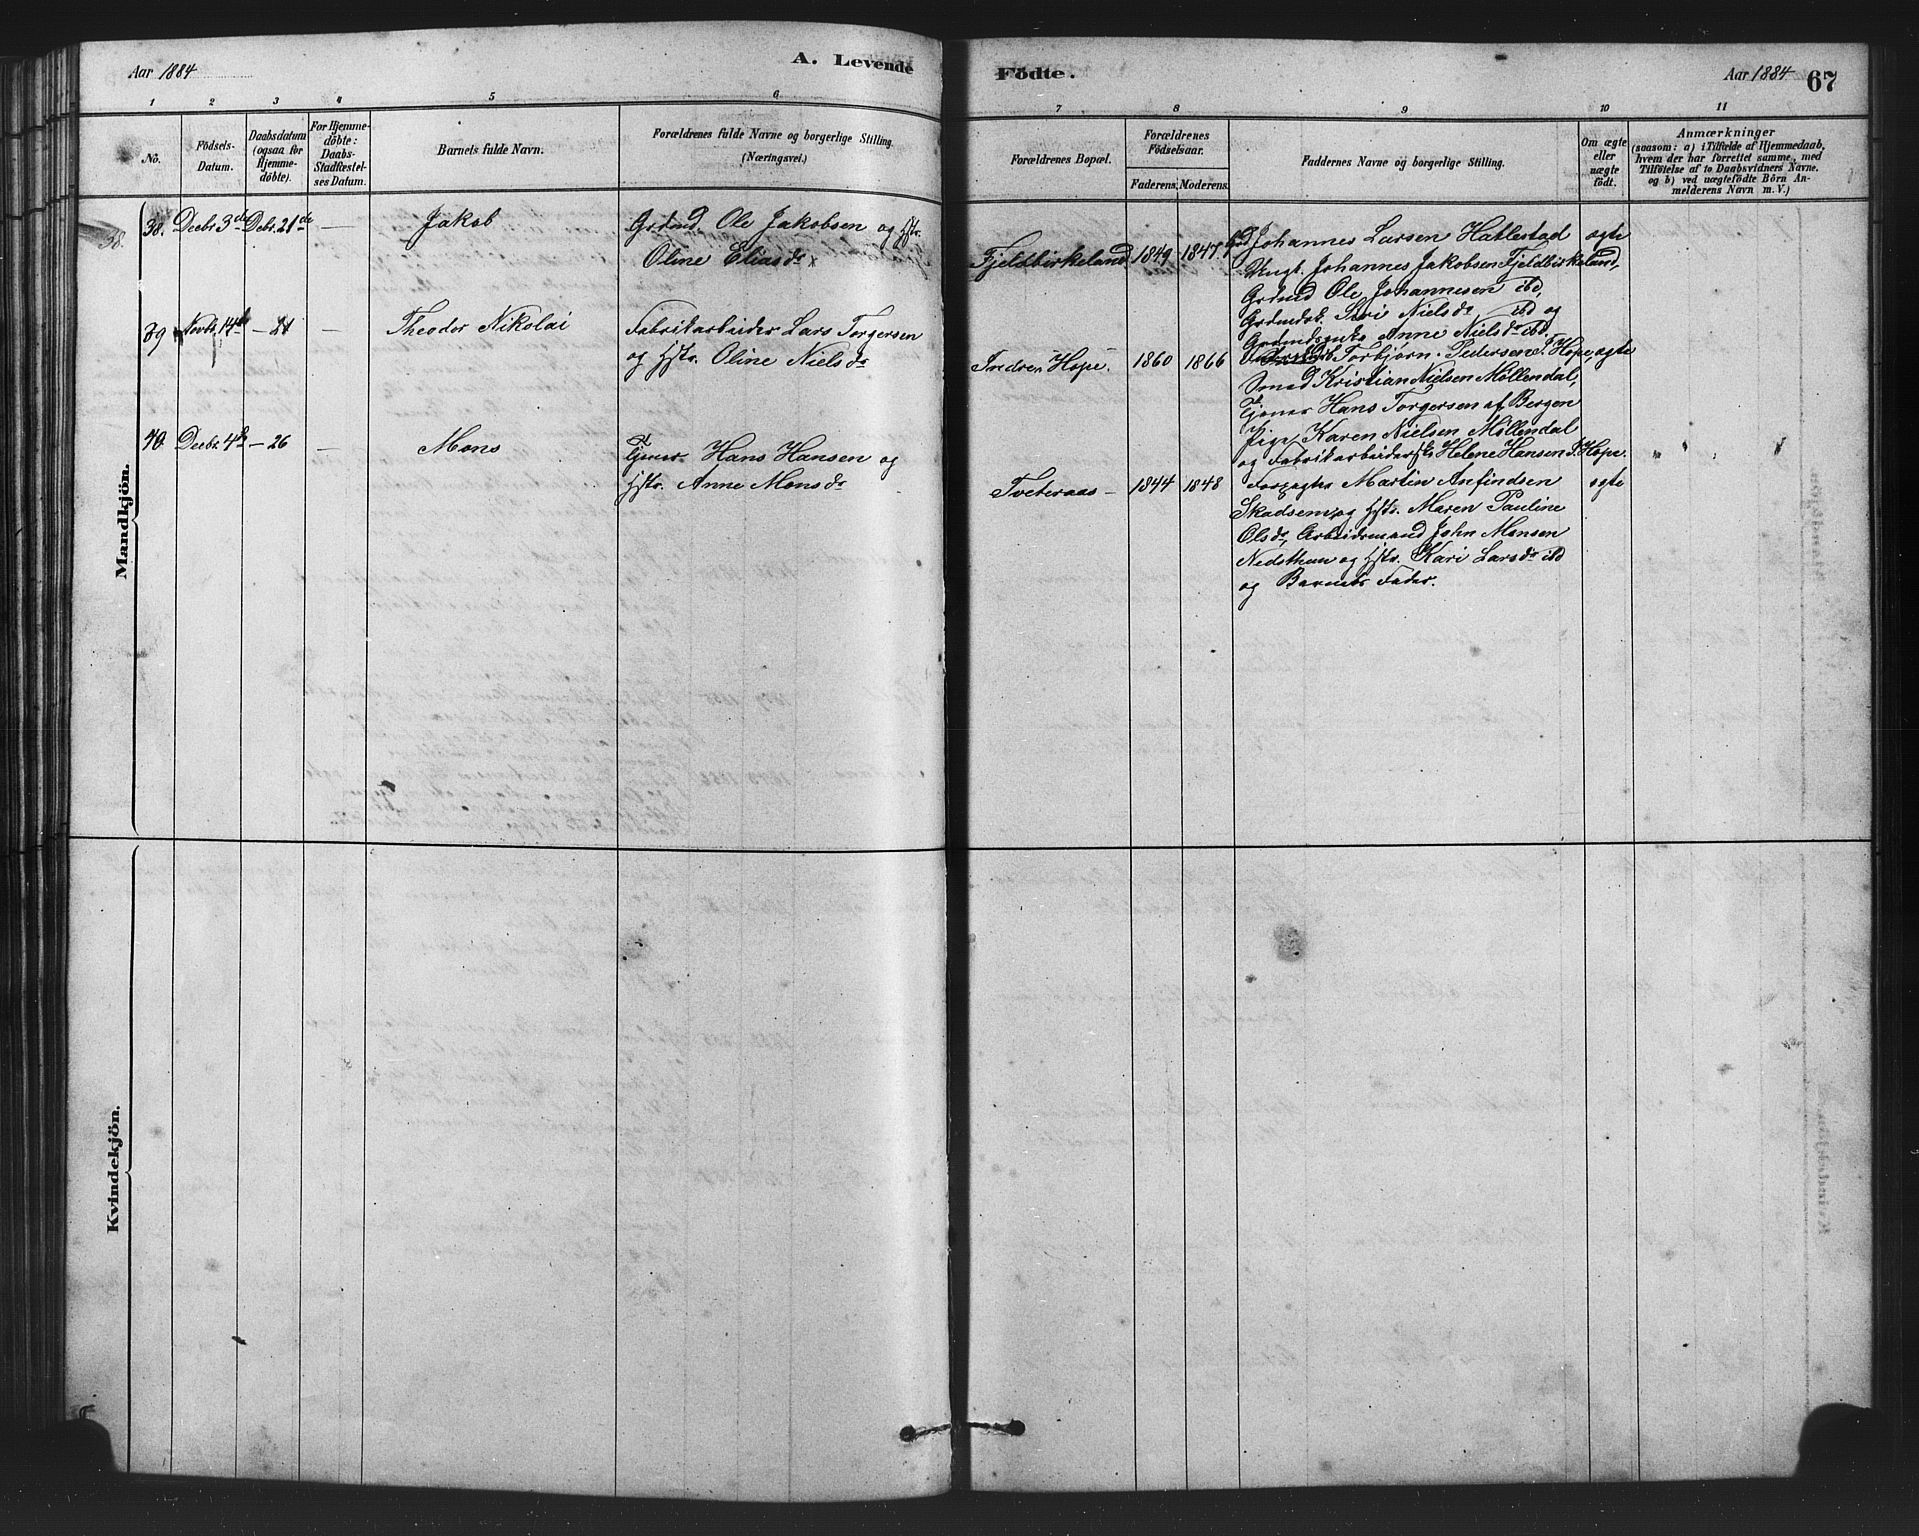 Aar 1884
A. Levende
Födte.
Aar 1884
67
1 2 3 4 5 6 7 8 9 10 11
No.
Födsels-
Datum.
Daabsdatum
(ogsaa for
Hjemme-
döbte).
For Hjemme-
döbte:
Daabs-
Stadfæstel-
ses Datum.
Barnets fulde Navn.
Forældrenes fulde Navne og borgerlige Stilling.
(Næringsvei.)
Forældrenes Bopæl.
Forældrenes
Födselsaar.
Faderens. Moderens.
Faddernes Navne og borgerlige Stilling.
Om ægte
eller
uægte
födt.
Anmærkninger
(saasom: a) i Tilfælde af Hjemmedaab,
hvem der har forrettet samme, med
Tilföielse af to Daabsvidners Navne.
og b) ved uægtefödte Börn An-
melderens Navn m. V.)
Mandkjön.
38.
38. Decbr 3de Debr. 21de — Jakob
Grdmd. Ole Jakobsen og Hstr.
Oline Eliasdr
Fjeldbirkeland 1849 1847
Grd Johannes Larsen Hatlestad
Ungk. Johannes Jakobsen Fjeldbirkeland,
Grdmd Ole Johannesen ibd,
Grdmdsk. Siri Nielsdr ibd og
Grdmdsenke Anne Nielsdr ibd.
ægte
39 Novbr. 14de — 21 — Theodor Nikolai
Fabrikarbeider Lars Torgersen
og Hstr. Oline Nielsdr
Indre Hope. 1860 1866
Torbjørn Pedersen I. Hope,
Smed Kristian Nielsen Møllendal,
Tjener Hans Torgersen af Bergen
Pige Karen Nielsen Møllendal
og Fabrikarbeiderske Helene Hansen I. Hope.
ægte
40. Decbr. 4de — 26 — Mons
Tjener. Hans Hansen og
Hstr. Anne Monsdr
Tveteraas — 1844 1848
Forpagter Martin Anfindsen
Skadsem, og Hstr. Maren Pauline
Olsdr, Arbeidsmand John Monsen
Nedsthun og Hstr. Kari Larsdr ibd
og Barnets Fader.
ægte
Kvindekjön.